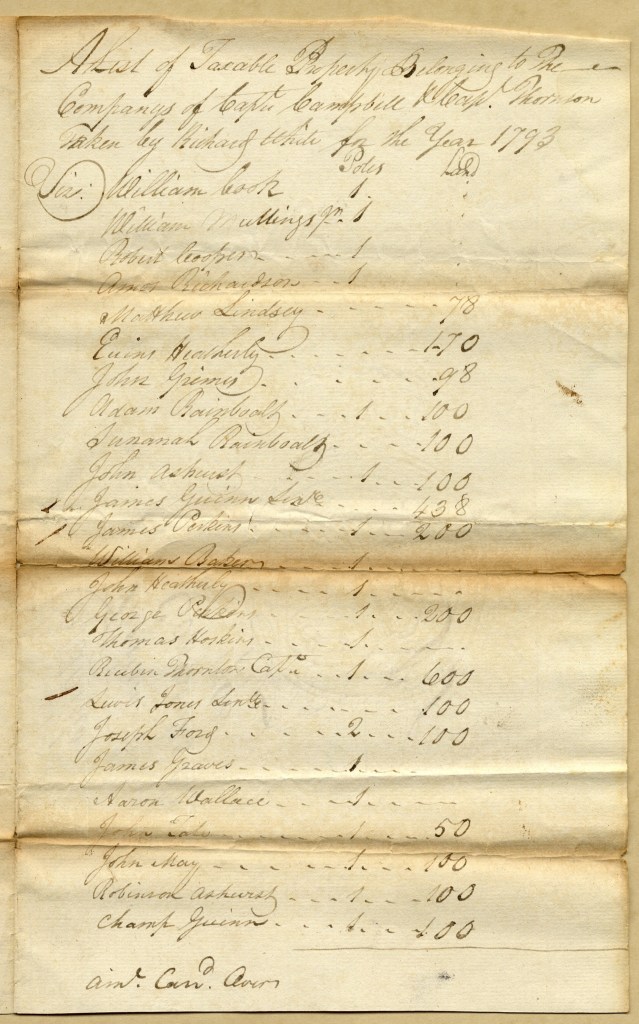 A List of Taxable Property Belonging to The
Companys of Capt. Campbell & Cap. Thornton
Taken by Richard White for the Year 1793
Poles Land
Viz: William Cook 1
William Mullings Jn. 1
Robert Cooper 1
Amos Richardson 1
Matthew Lindsey 78
Evins Heatherly 170
John Grimes 98
Adam Rainboalt 1 100
Rainboalt 100
John Ashurst 1 100
James Guinn 438
James Perkins 1 200
William Baker 1
John Heatherly 1
George Perkins 1 200
Thomas Hoskins 1
Reubin Thornton Capt. 1 600
Lewis Jones 100
Joseph Ford 2 100
James Graves 1
Aaron Wallace 1
John 1 50
John May 1 100
Robinson Ashurst 1 100
Champ Guinn 1 100
amt. Card. Over